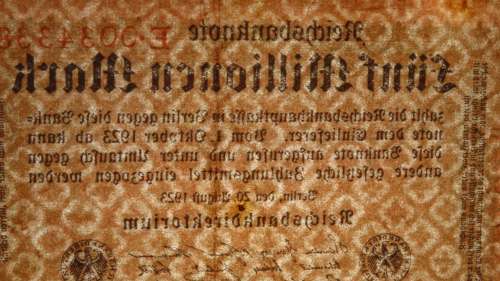 Reichsbanknote
Fünf Millionen Mark
zahlt die Reichsbankhauptkasse in Berlin gegen diese Bank-
note dem Einlieferer. Vom 1. Oktober 1923 ab kann
diese Banknote aufgerufen und unter Umtausch gegen
andere gesetzliche Zahlungsmittel eingezogen werden
Berlin, den 20. August 1923
Reichsbankdirektorium